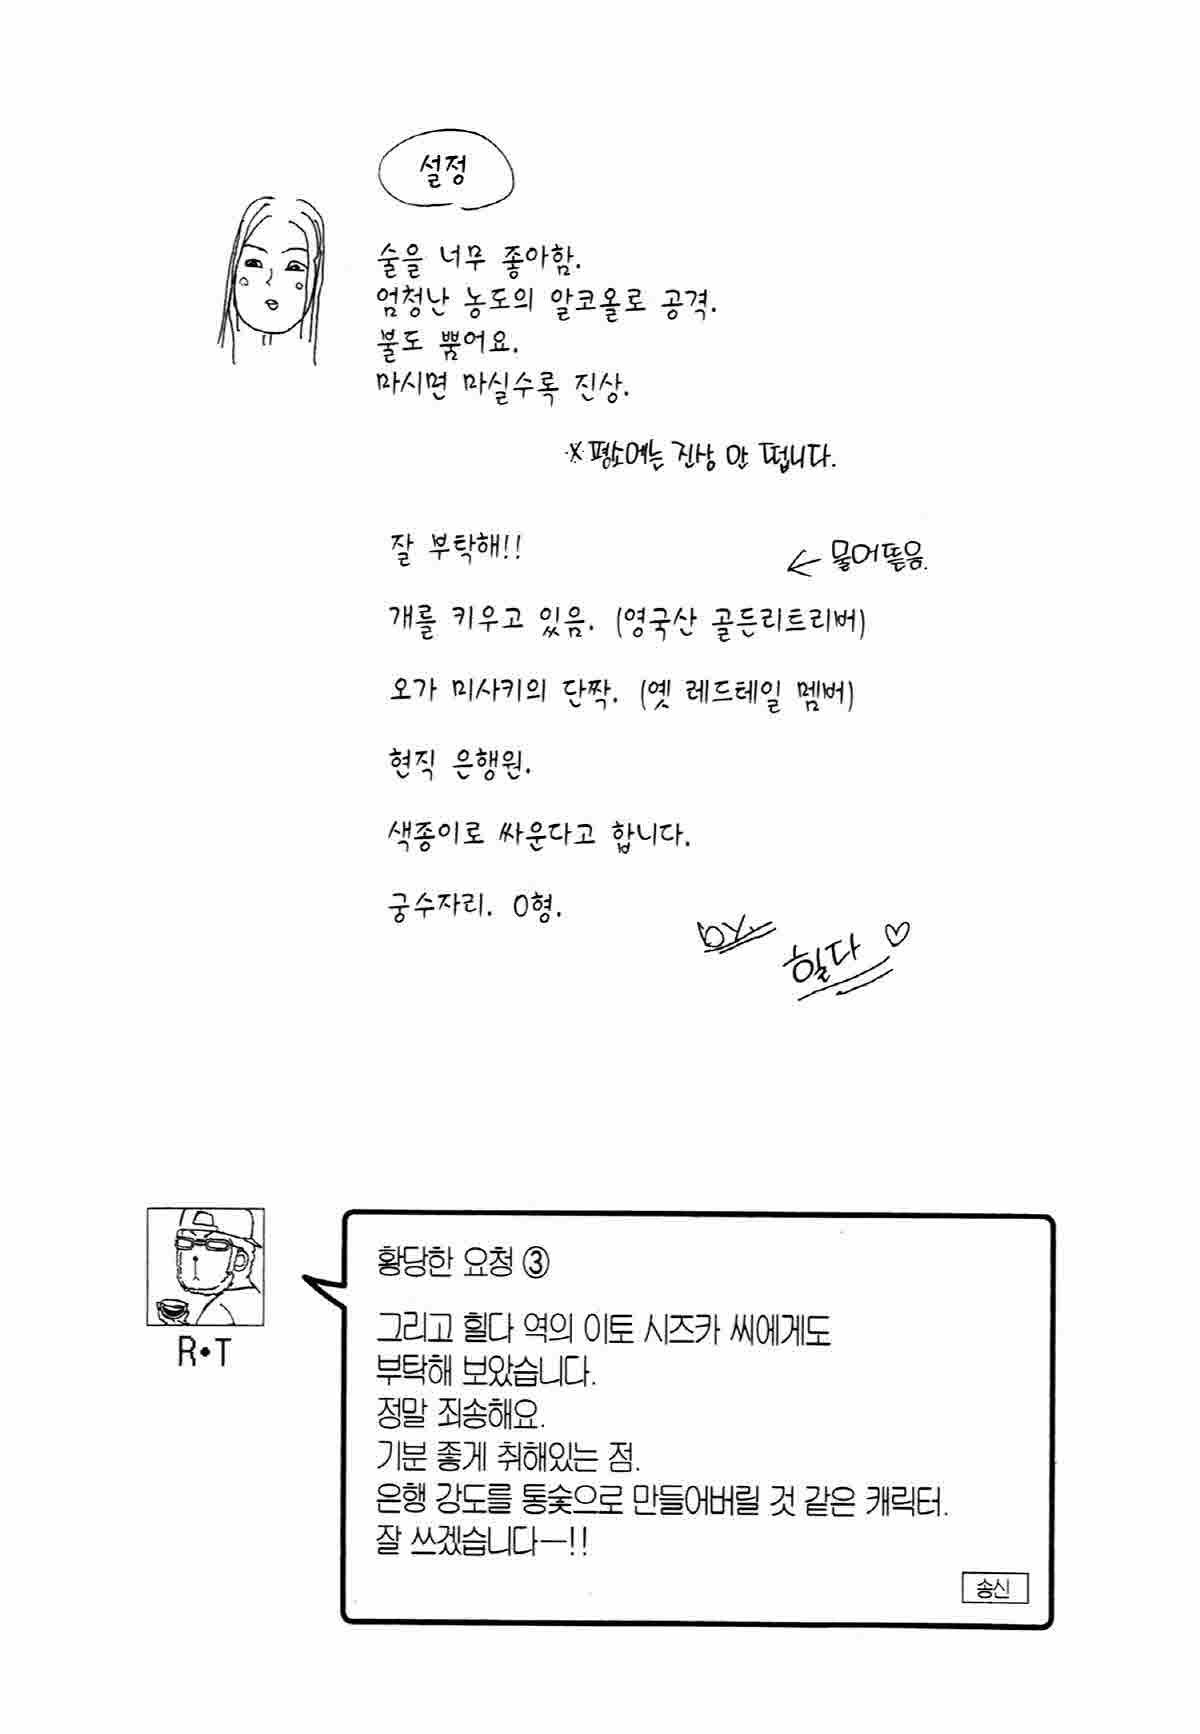 설정
술을 너무 좋아함.
엄청난 농도의 알코올로 공격.
불도 뿜어요.
마시면 마실수록 진상.
※평소에는 진상 안 떱니다.
잘 부탁해!!
← 물어뜯음.
개를 키우고 있음. (영국산 골든리트리버)
오가 미사키의 단짝. (옛 레드테일 멤버)
현직 은행원.
색종이로 싸운다고 합니다.
궁수자리. O형.
by.
힐다 ♡
R•T
황당한 요청 ③
그리고 힐다 역의 이토 시즈카 씨에게도
부탁해 보았습니다.
정말 죄송해요.
기분 좋게 취해있는 점.
은행 강도를 통숯으로 만들어버릴 것 같은 캐릭터.
잘 쓰겠습니다—!!
송신